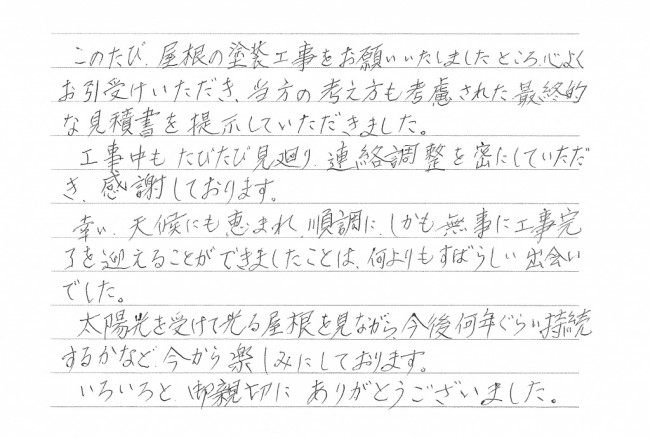 このたび、屋根の塗装工事をお願いいたしましたところ、心よく
お引受けいただき、当方の考え方も考慮された最終的
な見積書を提示していただきました。
工事中も たびたび見廻り、連絡調整を密にしていただ
き、感謝しております。
幸い、天候にも恵まれ、順調に、しかも無事に工事完
了を迎えることができましたことは、何よりもすばらしい出会い
でした。
太陽光を受けて光る屋根を見ながら、今後何年ぐらい持続
するかなど、今から楽しみにしております。
いろいろと、御親切に ありがとうございました。